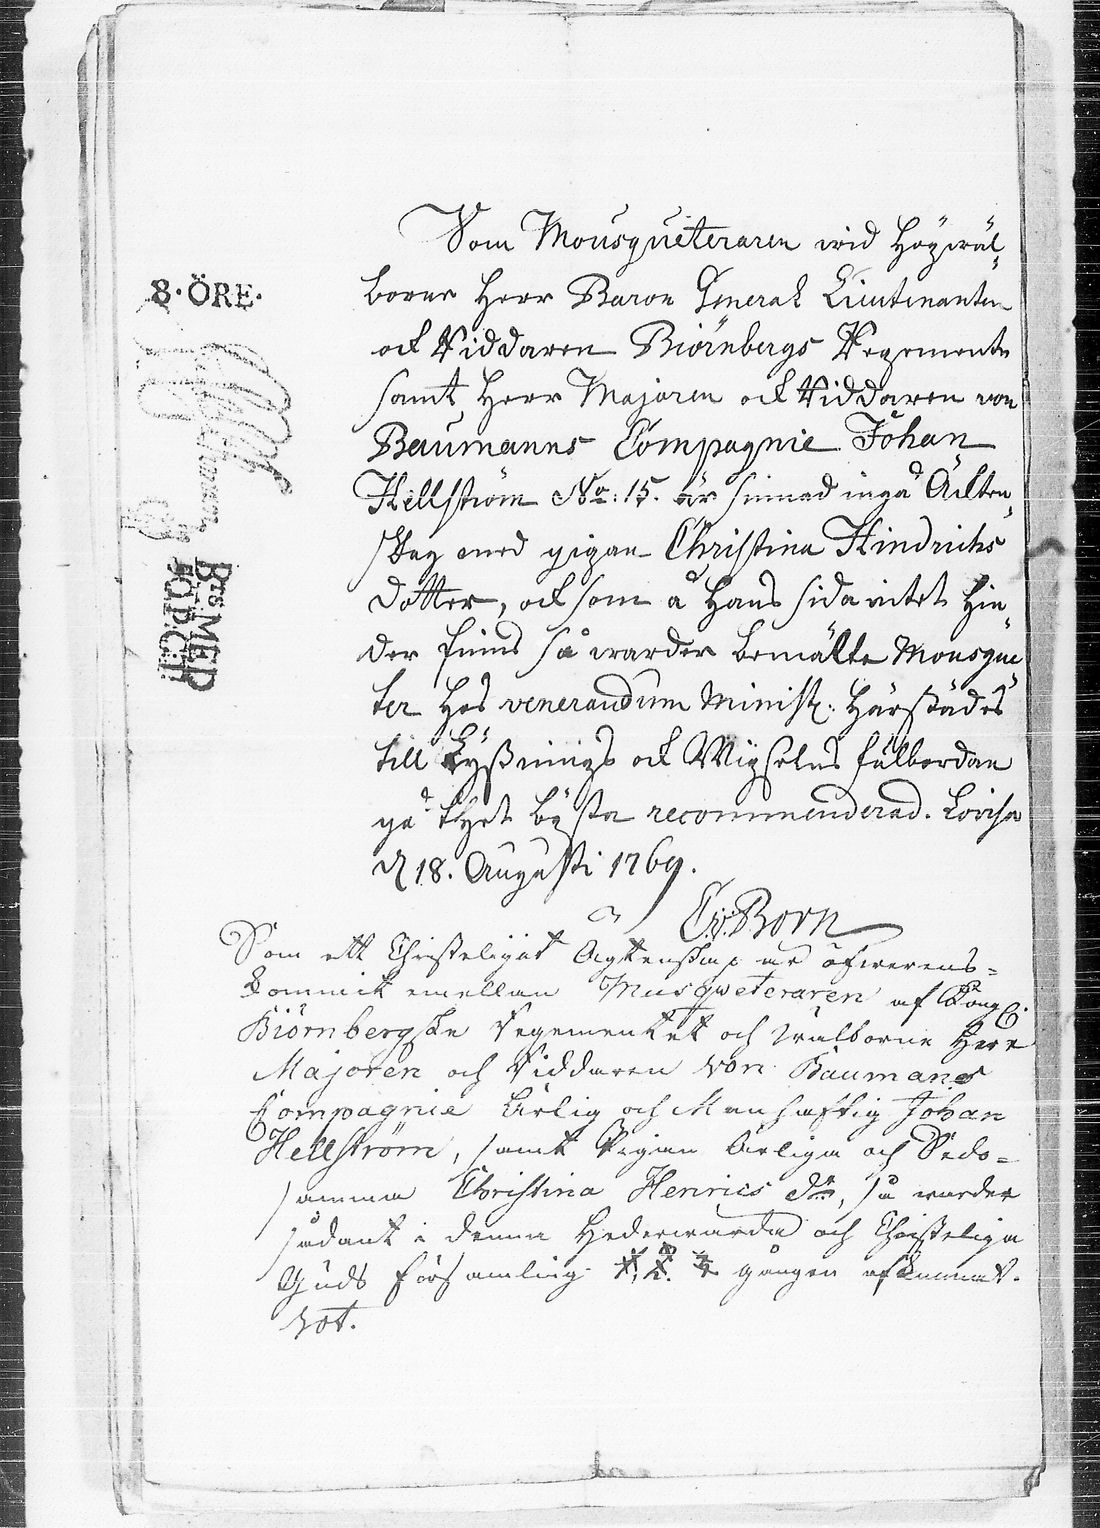 Som Mousqueteraren wid Högwäl„
borne Herr Baron General Lieutenanten
och Riddaren Biörnbergs Regemente
samt Herr Majoren och Riddaren von
Baumanns Compagnie Johan
Hellström No: 15. är sinnad ingå Ächten„
skap med pigan Christina Hindrichs
dotter, och som å Hans sida intet Hin„
der finns så warder bemälte Mousque„
ter Hos venerandum Minist: härstädes
till Lyßnings och Wigselns fulbordan
på thet bästa recommenderad. Lovisa
d 18. Augusti 1769.
C.v.Born
Som ett Christeligit Ägtenskap är öfwerens=
kommit emellan Musqweteraren af Kongl.
Biörnbergske Regementet och Wälborne Herr
Majoren och Riddaren von Baumans
Compagnie Ärlig och Manhaftig Johan
Hellström, samt Pigan Ärliga och Sedo=
samma Christina Henrics dr, så warder
sådant i denna Hederwärda och Christeliga
Guds Församling 1. 2. 3 gången afkunnat.
8·ÖRE·